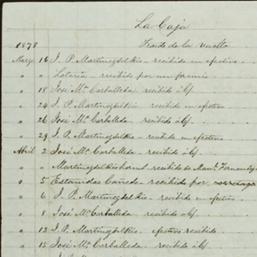 La Caja
1878 Fondo de la vuelta
Mayo 16 J. P. Martinez del Rio recibido en efectivo
" " Loteria recibido por un premio
" 18 José Ma. Carballeda recibido
" 24 J. P. Martinez del Rio recibido en efectivo
" 26 José Ma. Carballeda recibido
" 29 J. P. Martinez del Rio recibido en efectivo
Abril 2 José Ma. Carballeda recibido
" " Martinez del Rio recibido de Manl. Fernandez
" 5 Estanislao Cañedo recibido por corretage
" 6 J. P. Martinez del Rio recibido en efectivo
" José Ma. Carballeda recibido
" 13 J. P. Martinez del Rio efectivo recibido
" 15 José Ma. Carballeda recibido